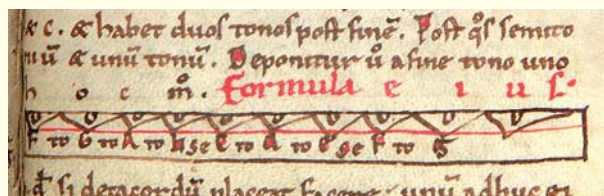 & c. & habet duos tonos post finē. Post q̊s semito
niū & unū tonū. Deponitur ů a fine tono uno
h o c m̊. Formula e i u s.
F to G to to h se to to se F to G
si decacordū placeat facere. unū adhuc ei